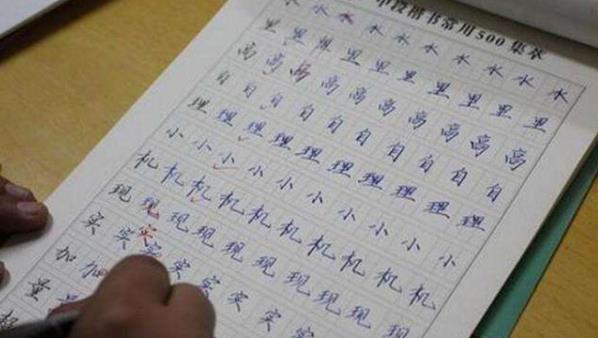 楷书常用500集萃
水水水水水水水水水水
里里里里里里里里里里
高高高高高高高高高高
自自自自自自自自自自
理理理理理理理理理理
小小小小小小小小小小
机机机机机机机机机机
现现现现现现现现现现
实实实实实实实实实实
加加
量